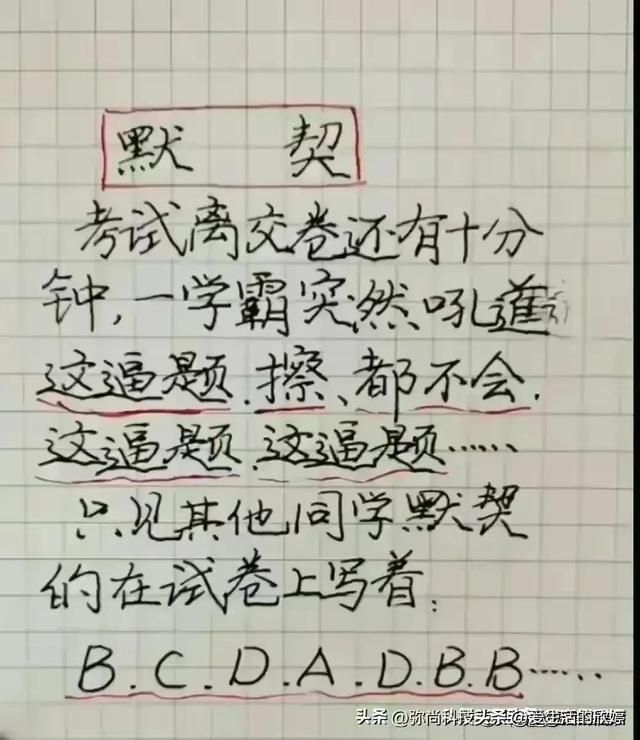 默 契
考试离交卷还有十分
钟,一学霸突然吼道
这逼题.擦、都不会.
这逼题.这逼题……
只见其他同学默契
的在试卷上写着:
B.C.D.A.D.B.B……
头条 @弥尚科技头条@爱生活的欣嬷